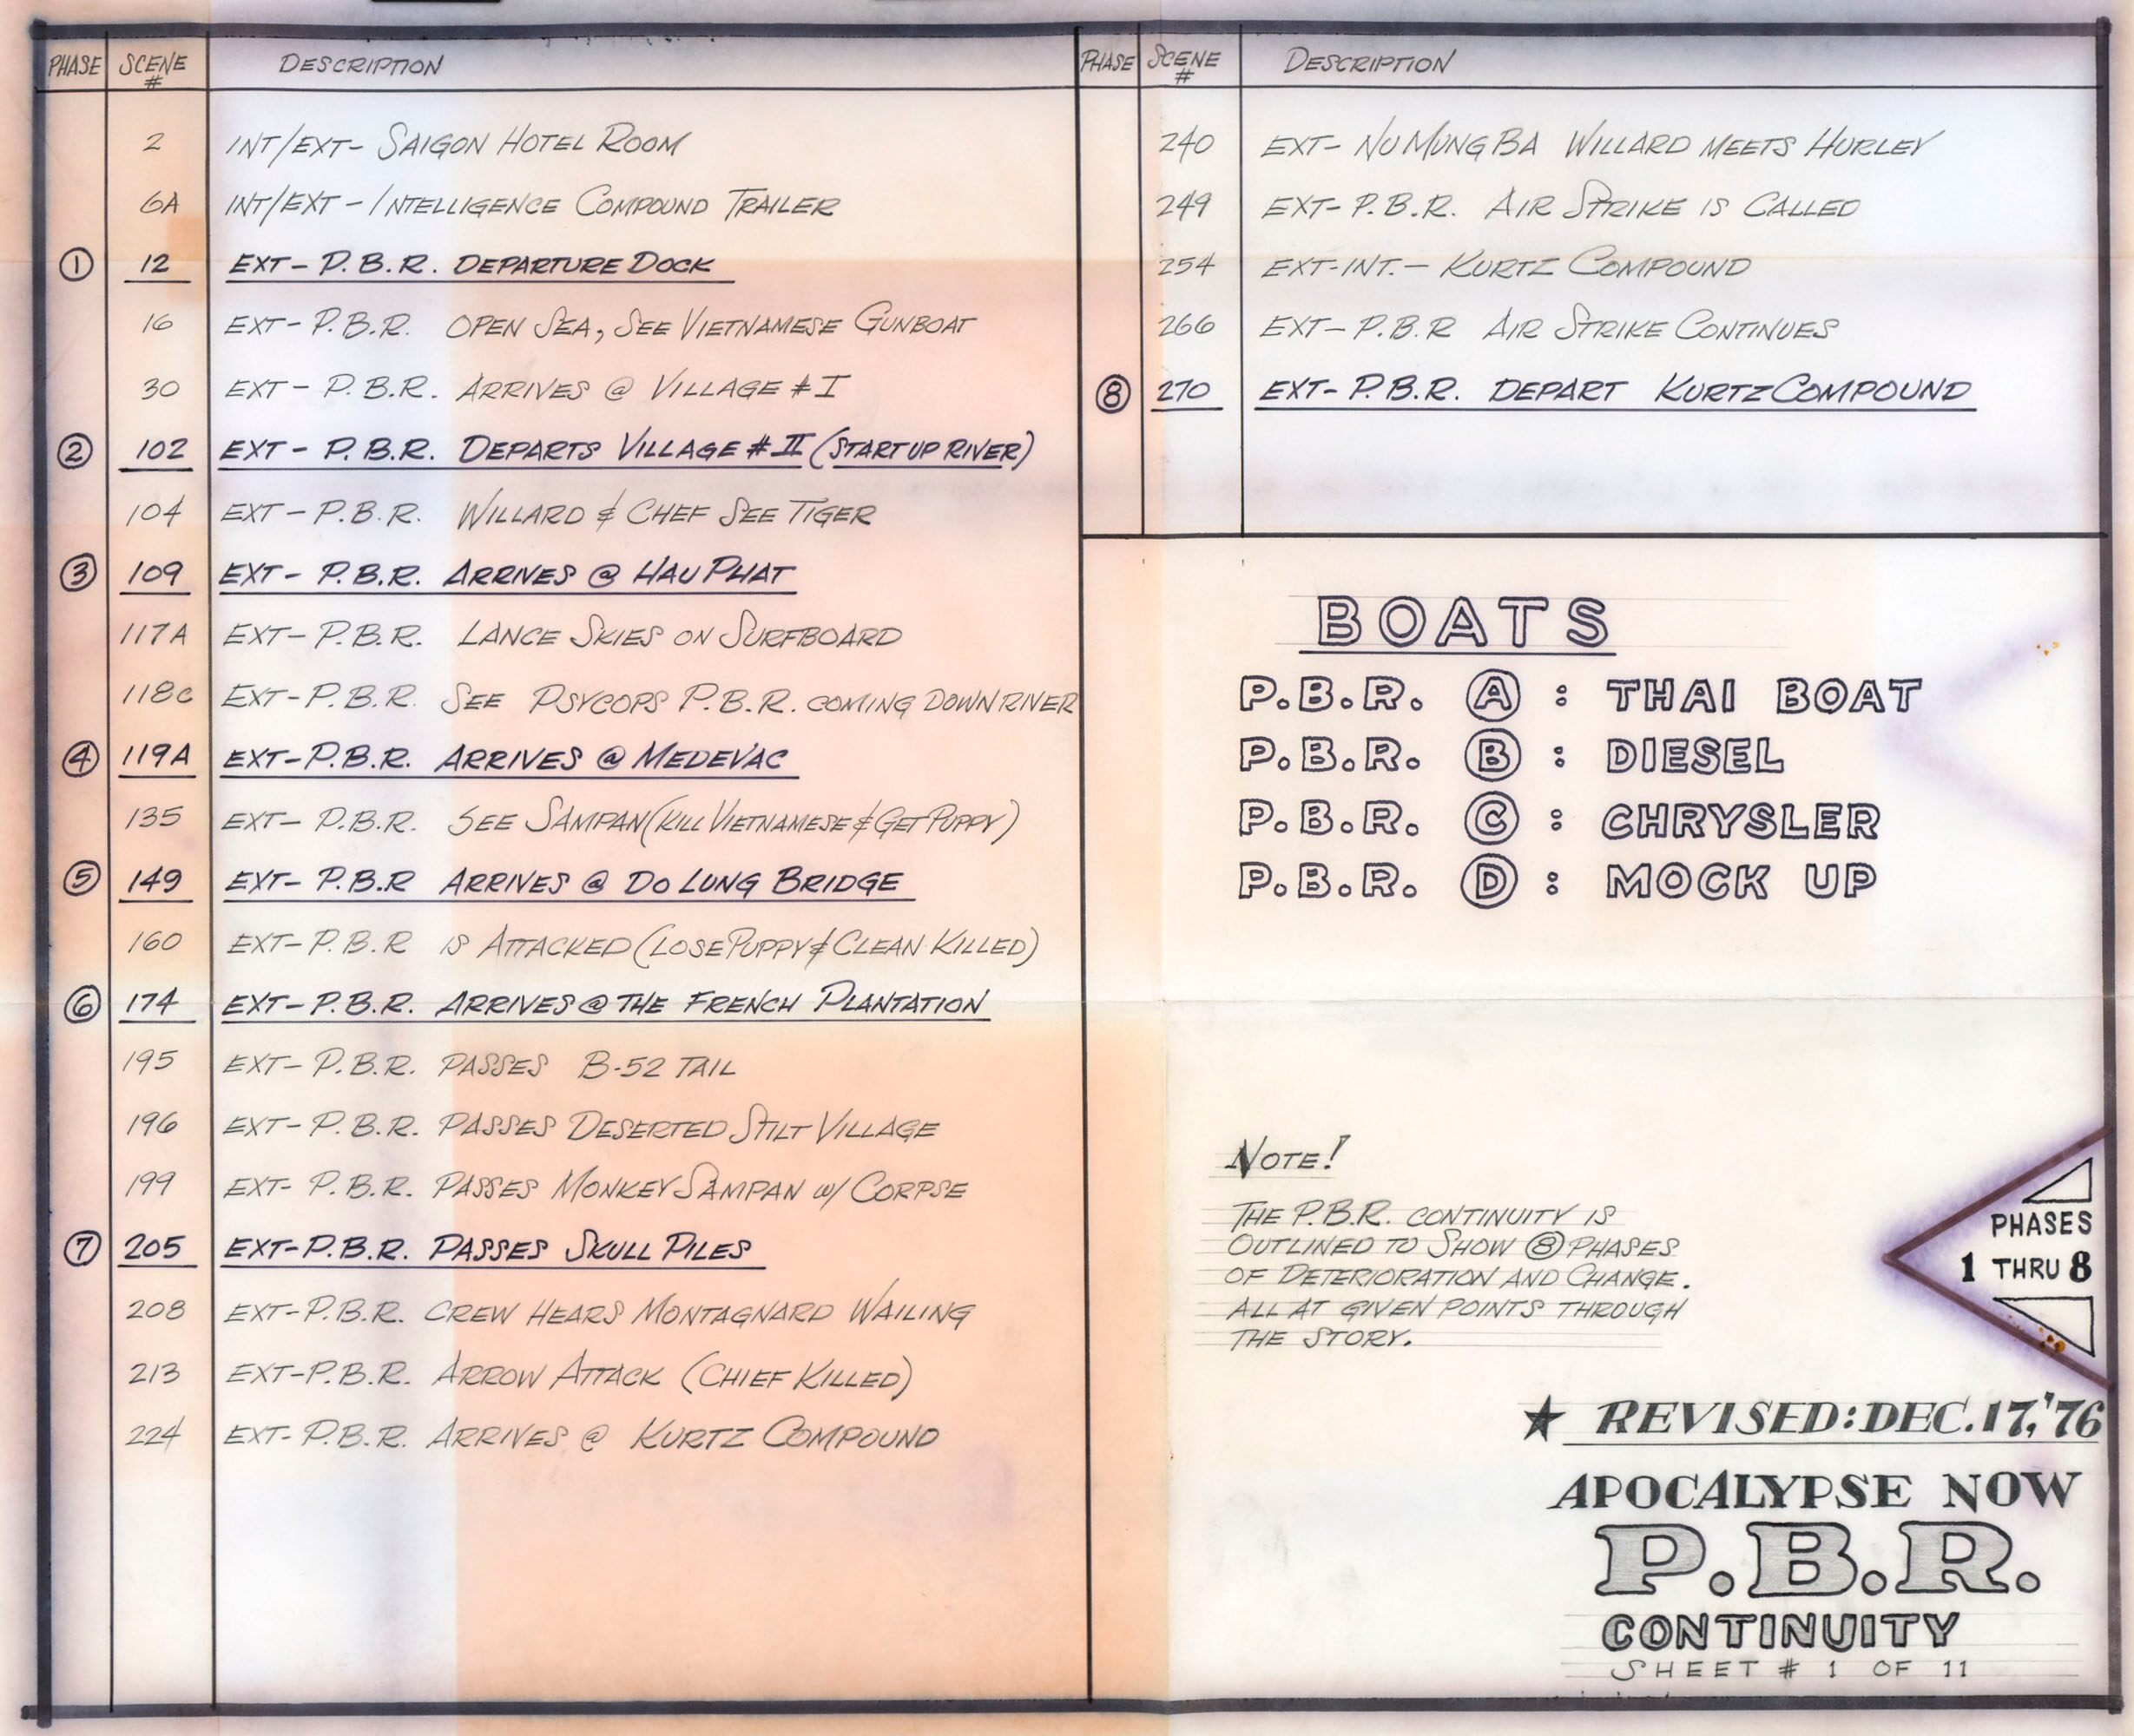 PHASE SCENE # DESCRIPTION
2 INT/EXT- SAIGON HOTEL ROOM
6A INT/EXT - INTELLIGENCE COMPOUND TRAILER
1 12 EXT- P.B.R. DEPARTURE DOCK
16 EXT- P.B.R. OPEN SEA, SEE VIETNAMESE GUNBOAT
30 EXT- P.B.R. ARRIVES @ VILLAGE # I
2 102 EXT- P.B.R. DEPARTS VILLAGE # II (START UP RIVER)
104 EXT- P.B.R. WILLARD & CHEF SEE TIGER
3 109 EXT- P.B.R. ARRIVES @ HAU PHAT
117A EXT- P.B.R. LANCE SKIES ON SURFBOARD
118C EXT- P.B.R. SEE PSYCOPS P.B.R. COMING DOWN RIVER
4 119A EXT-P.B.R. ARRIVES @ MEDEVAC
135 EXT- P.B.R. SEE SAMPAN (KILL VIETNAMESE & GET PUPPY)
5 149 EXT- P.B.R ARRIVES @ DO LUNG BRIDGE
160 EXT- P.B.R IS ATTACKED (LOSE PUPPY & CLEAN KILLED)
6 174 EXT- P.B.R. ARRIVES @ THE FRENCH PLANTATION
195 EXT- P.B.R. PASSES B-52 TAIL
196 EXT- P.B.R. PASSES DESERTED STILT VILLAGE
199 EXT- P.B.R. PASSES MONKEY SAMPAN W/ CORPSE
7 205 EXT-P.B.R. PASSES SKULL PILES
208 EXT-P.B.R. CREW HEARS MONTAGNARD WAILING
213 EXT-P.B.R. ARROW ATTACK (CHIEF KILLED)
224 EXT- P.B.R. ARRIVES @ KURTZ COMPOUND
PHASE SCENE # DESCRIPTION
240 EXT- NU MUNG BA WILLARD MEETS HURLEY
249 EXT- P.B.R. AIR STRIKE IS CALLED
254 EXT-INT.- KURTZ COMPOUND
266 EXT- P.B.R AIR STRIKE CONTINUES
8 270 EXT- P.B.R. DEPART KURTZ COMPOUND
BOATS
P.B.R. A : THAI BOAT
P.B.R. B : DIESEL
P.B.R. C : CHRYSLER
P.B.R. D : MOCK UP
NOTE!
THE P.B.R. CONTINUITY IS
OUTLINED TO SHOW 8 PHASES
OF DETERIORATION AND CHANGE.
ALL AT GIVEN POINTS THROUGH
THE STORY.
PHASES
1 THRU 8
★ REVISED: DEC. 17, '76
APOCALYPSE NOW
P.B.R.
CONTINUITY
SHEET # 1 OF 11